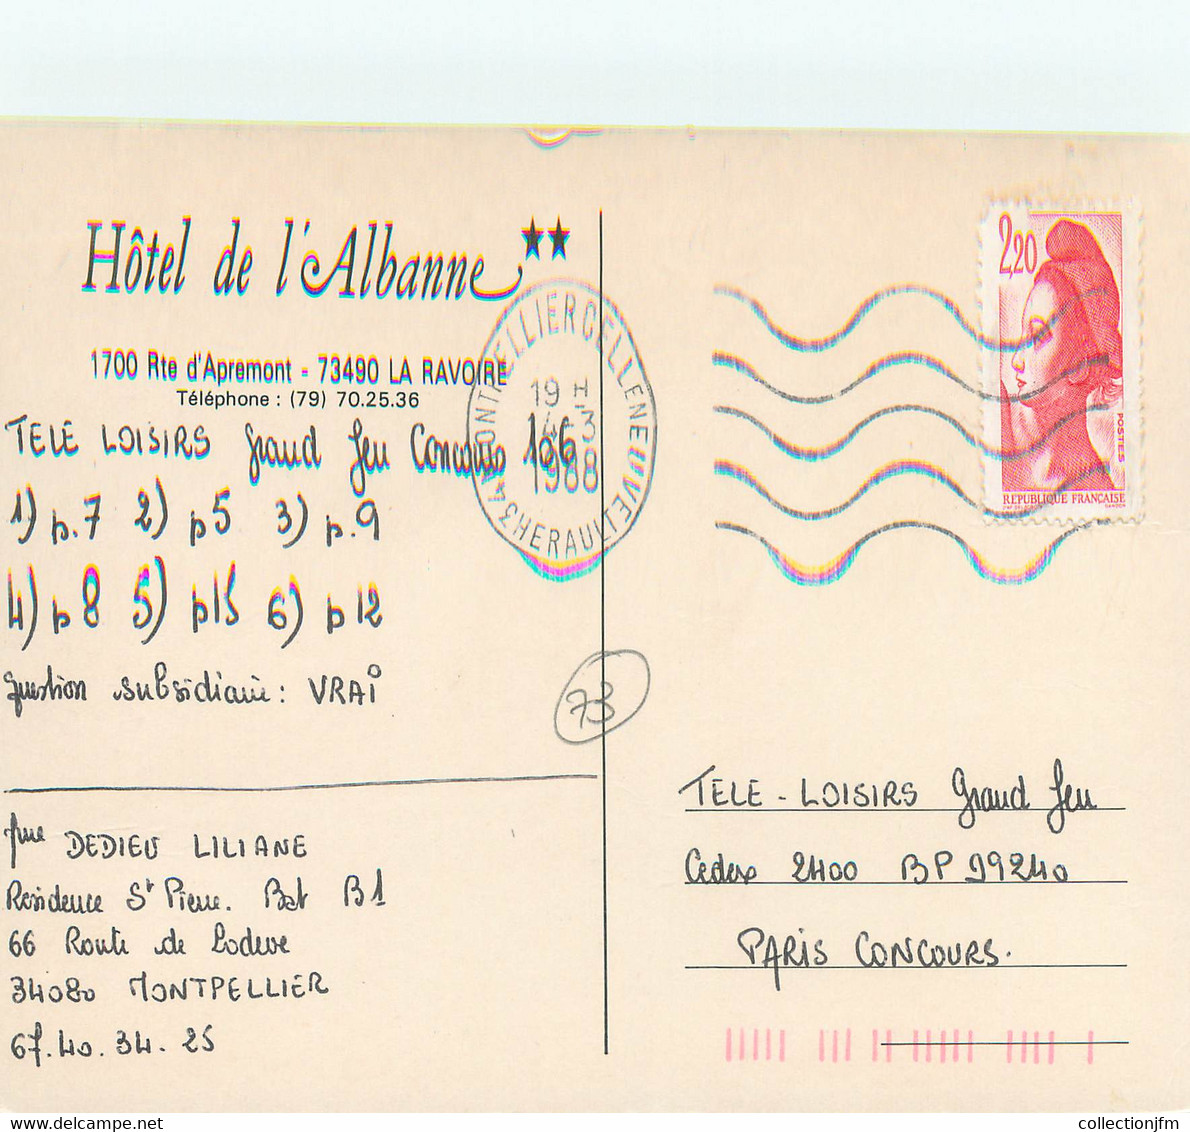 Hôtel de l'Albanne ★★
1700 Rte d'Apremont - 73490 LA RAVOIRE
Téléphone : (79) 70.25.36
TELE LOISIRS Grand Jeu Concours 166
1) p.7 2) p5 3) p.9
4) p8 5) p15 6) p12
Question subsidiaire: VRAI
73
Mme DEDIEU LILIANE
Résidence St Pierre. Bat B1
66 Route de Lodeve
34080 MONTPELLIER
67.40.34.25
34 MONTPELLIER CELLENEUVE
HERAULT
19 H
4-3
1988
2,20
POSTES
REPUBLIQUE FRANÇAISE
GANDON
TELE-LOISIRS Grand Jeu
Cedex 2400 BP 99240
PARIS CONCOURS.
collectionjfm